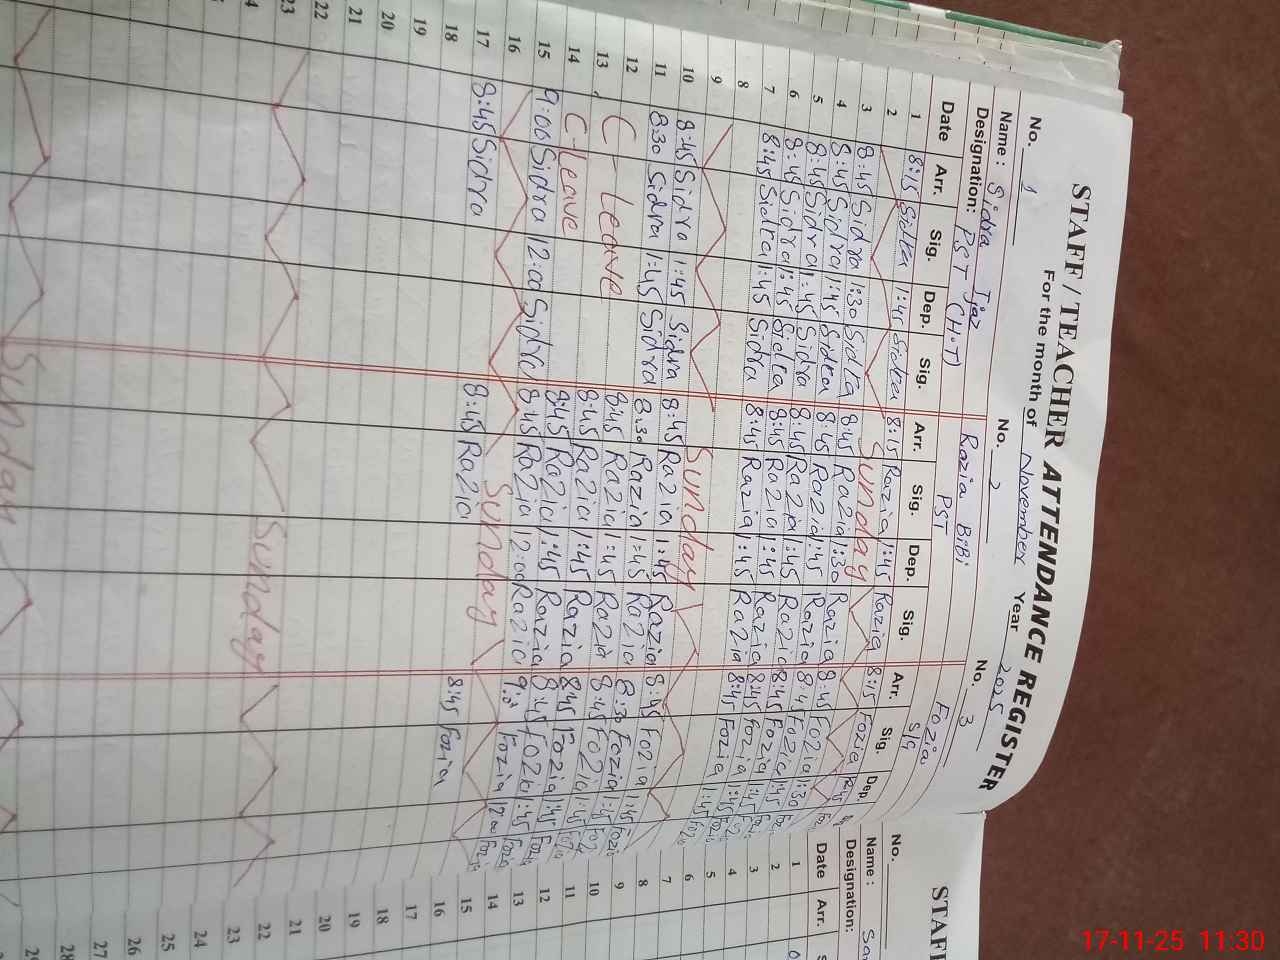 STAFF / TEACHER ATTENDANCE REGISTER
For the month of November Year 2025
No. 1 No. 2 No. 3
Name : Sidra Ijaz Razia BiBi Fozia
Designation: PST (H.T) PST S/G
Date Arr. Sig. Dep. Sig. Arr. Sig. Dep. Sig. Arr. Sig. Dep.
1 8:15 Sidra 1:45 Sidra 8:15 Razia 1:45 Razia 8:15 Fozia 1:45
2 Sunday
3 8:45 Sidra 1:30 Sidra 8:45 Razia 1:30 Razia 8:45 Fozia 1:30
4 8:45 Sidra 1:45 Sidra 8:45 Razia 1:45 Razia 8:45 Fozia 1:45
5 8:45 Sidra 1:45 Sidra 8:45 Razia 1:45 Razia 8:45 Fozia 1:45
6 8:45 Sidra 1:45 Sidra 8:45 Razia 1:45 Razia 8:45 Fozia 1:45
7 8:45 Sidra 1:45 Sidra 8:45 Razia 1:45 Razia 8:45 Fozia 1:45
8
9 Sunday
10 8:45 Sidra 1:45 Sidra 8:45 Razia 1:45 Razia 8:45 Fozia 1:45 Fozia
11 8:30 Sidra 1:45 Sidra 8:30 Razia 1:45 Razia 8:30 Fozia 1:45
12 C-Leave 8:45 Razia 1:45 Razia 8:45 Fozia 1:45
13
14 C-Leave 8:45 Razia 1:45 Razia 8:45 Fozia 1:45
15 9:00 Sidra 12:00 Sidra 8:45 Razia 12:00 Razia 9:00 Fozia 12:00 Fozia
16 Sunday
17 8:45 Sidra 8:45 Razia 8:45 Fozia
18
19
20
21
22
23 Sunday
Sunday
STAFF
No.
Name :
Designation:
Date Arr.
1
2
3
4
5
6
7
8
9
10
11
12
13
14
15
16
17
18
19
20
21
22
23
24
25
26
27
28
29
17-11-25 11:30